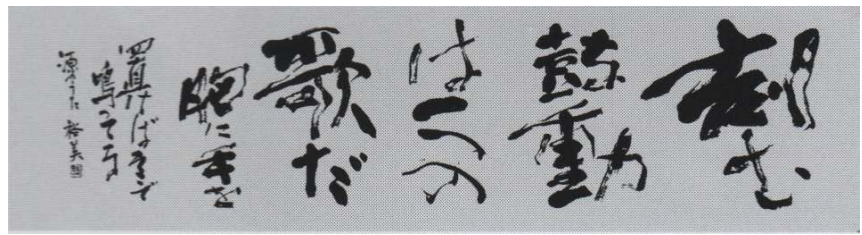 刻む
鼓動
は一つの
歌だ
胸に手を
置けばそこで
鳴ってる
源のうた 裕美